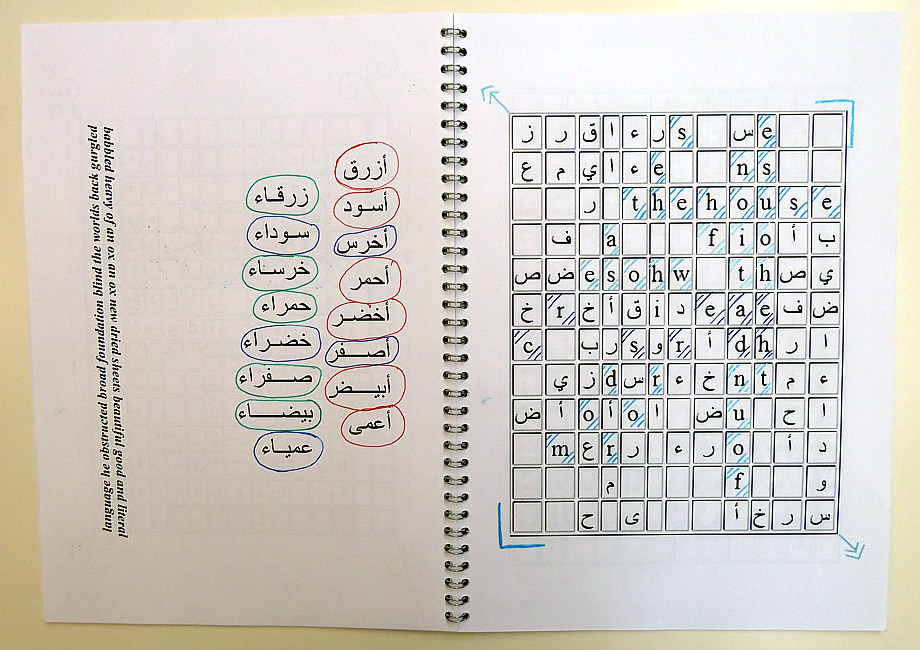 language he obstructed broad foundation blind the worlds back gurgled
babbled heavy xo un xo new dried sheets quantify good and literal
أزرق
زرقاء
أسود
سوداء
أخرس
خرساء
أحمر
حمراء
أخضر
خضراء
أصفر
صفراء
أبيض
بيضاء
أعمى
عمياء
ز ر ق ا ء ر s س e
ع م ي ا ء e n s
ر t h e h o u s e
ف a f i o أ ب
ص ض e s o h w t h ص ي
خ r خ أ ق i د e a e ف ض
c ب ر s و r أ d h ر ا
ي ز d س r ء خ n t م ء
ض أ o أ o ا ض u ح ا
m ع r ر ء ر o أ د
م f و
ح ى أ خ ر س